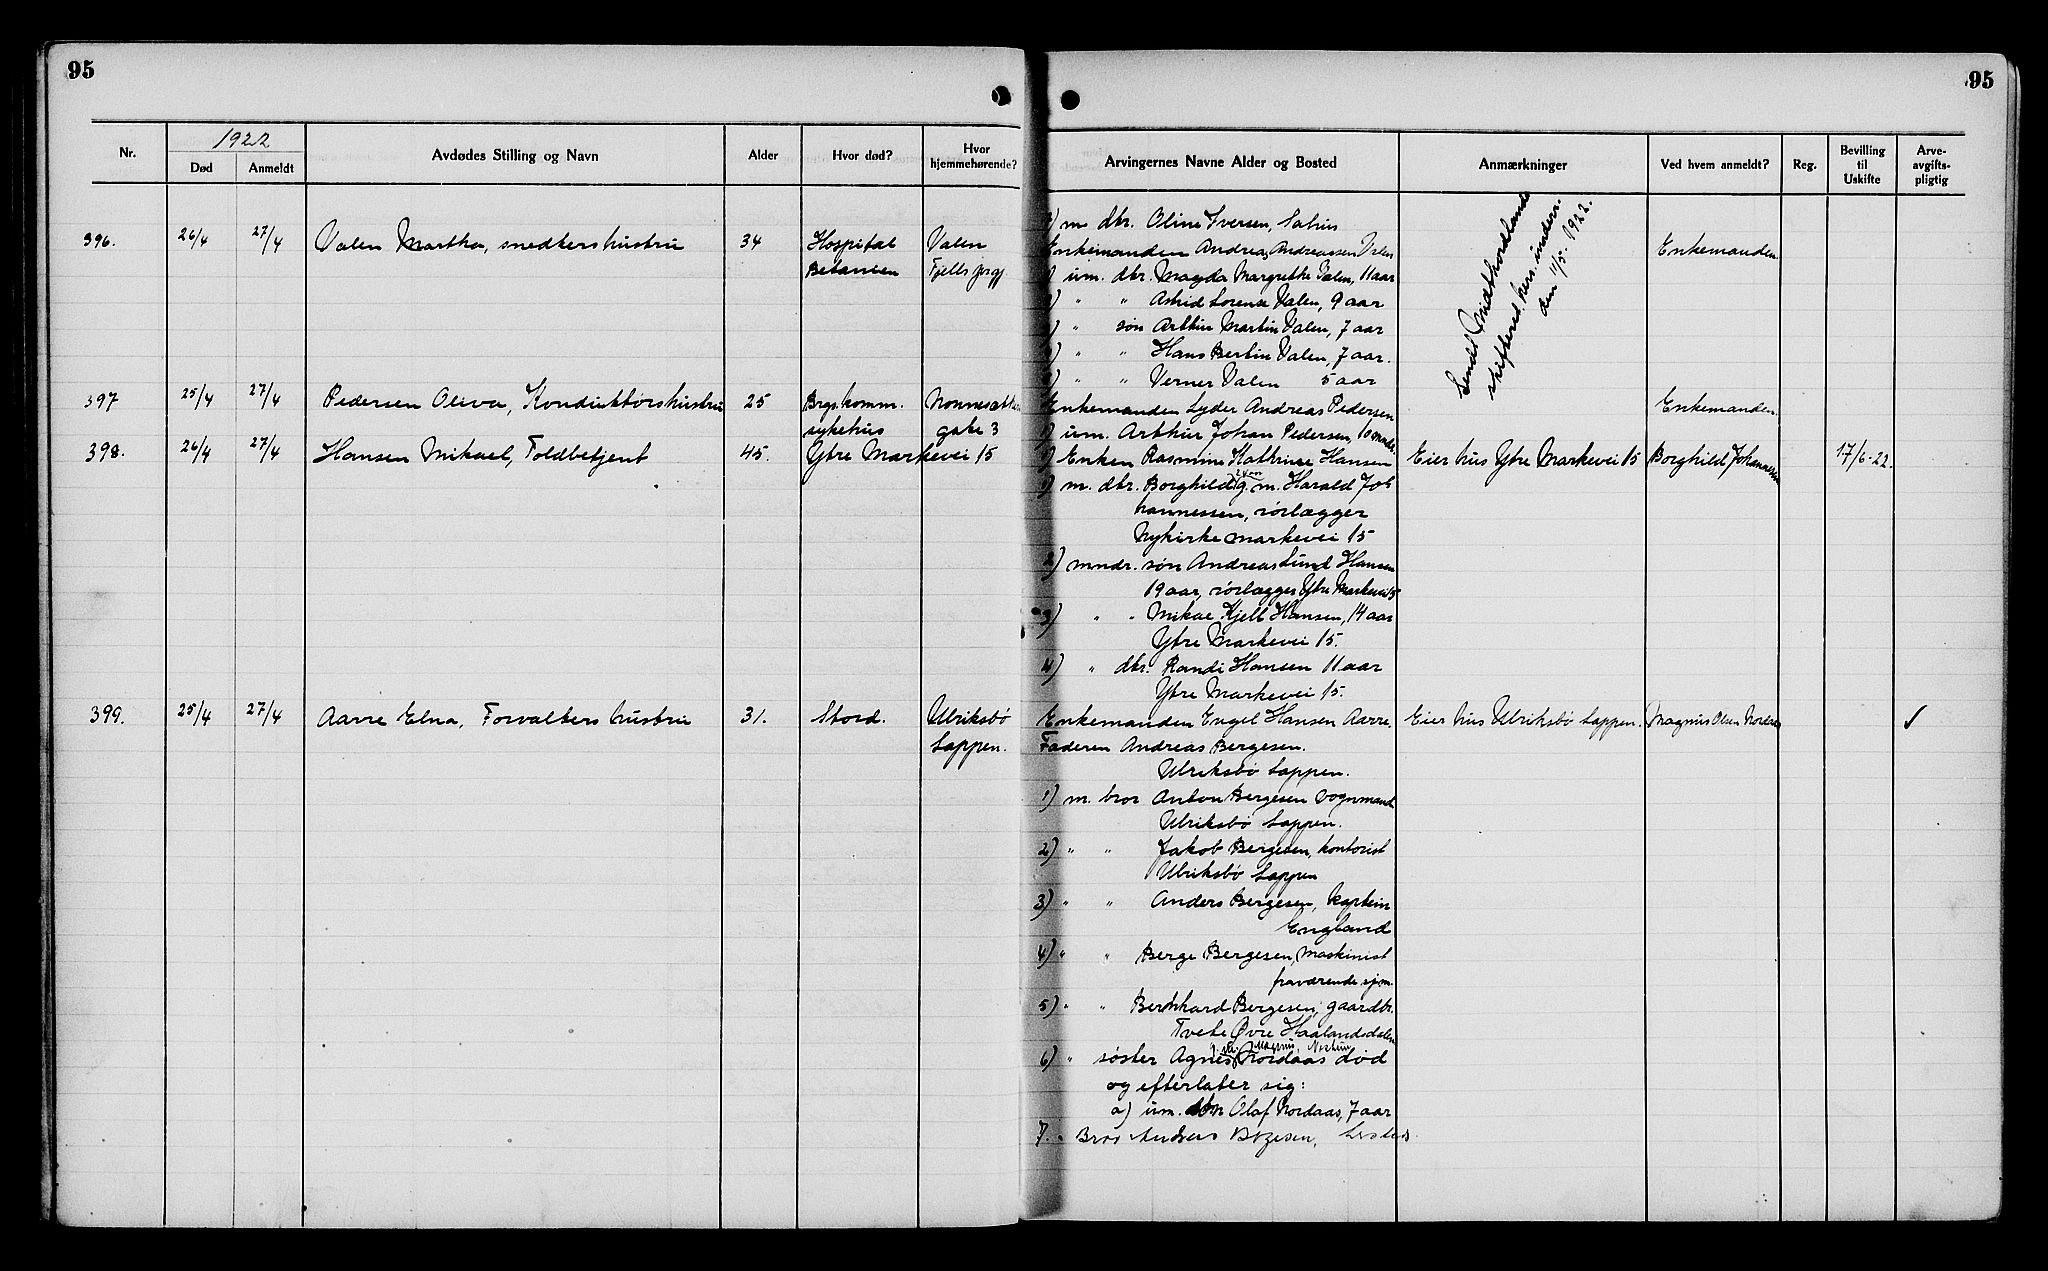 95
1922
Nr.
Død
Anmeldt
Avdødes Stilling og Navn
Alder
Hvor død?
Hvor hjemmehørende?
396. 26/4 27/4 Valen Martha, snedkershustru 34 Hospital Valen
Betanien Fjells prgj.
397 25/4 27/4 Pedersen Oliva, Konduktørshustru 25 Brgs. komm. Nonnesæter
sykehus gate 3
398. 26/4 27/4 Hansen Mikael, Toldbetjent 45. Ytre Markevei 15
399. 25/4 27/4 Aarre Elna, Forvalters hustru 31. Stord. Ulriksbø
Lappen.
95
Arvingernes Navne Alder og Bosted
Anmærkninger
Ved hvem anmeldt?
Reg.
Bevilling
til
Uskifte
Arve-
avgifts-
pligtig
m. dtr. Oline Iversen,
Enkemanden Andreas Andreassen Valen Enkemanden.
um. dtr. Magda Margrethe Valen, 11 aar
" " Astrid Lorense Valen, 9 aar
" søn Arthur Martin Valen, 7 aar
" " Hans Bertin Valen, 7 aar.
" " Verner Valen 5 aar
Sendt Midthordland
skifteret hers. indern.
den 11/5. 1922.
Enkemanden Lyder Andreas Pedersen Enkemanden.
1) um. Arthur Johan Pedersen, 10 mndr.
Enken Rasmine Kathrine Hansen Eier hus Ytre Markevei 15 Borghild Johannessen 17/6-22.
1) m. dtr. Borghild 24 aar g. m. Harald Joh
hannessen, rørlægger
Nykirke markevei 15
2) mndr. søn Andreas Lund Hansen
19 aar, rørlægger Ytre Markevei 15
3) " " Mikae Kjell Hansen, 14 aar
Ytre Markevei 15.
4) " dtr. Randi Hansen 11 aar
Ytre Markevei 15.
Enkemanden Engel Hansen Aarre. Eier hus Ulriksbø Lappen. Magnus Olsen Nordaas ✓
Faderen Andreas Bergesen.
Ulriksbø Lappen.
1) m. bror Anton Bergesen vognmand
Ulriksbø Lappen.
2) " " Jakob Bergesen, kontorist
Ulriksbø Lappen
3) " " Anders Bergesen, kaptein
England
4) " " Berge Bergesen, Maskinist
fraværende sjøm.
5) " " Bernhard Bergesen, gaardbr.
Tveite Øvre Haalandsdalen
Magnus
6) " søster Agnes Nordaas død
og efterlater sig:
a) um. søn Olaf Nordaas, 7 aar
7. " Bror Andreas Bergesen,